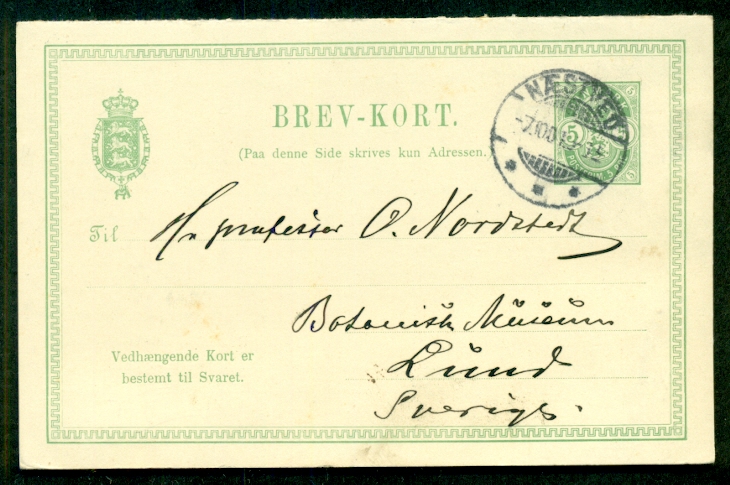 BREV-KORT.
(Paa denne Side skrives kun Adressen.)
NÆSTVED
5
Til Hr professor O. Nordstedt
Botanisk Museum
Lund
Sverige.
Vedhængende Kort er
bestemt til Svaret.